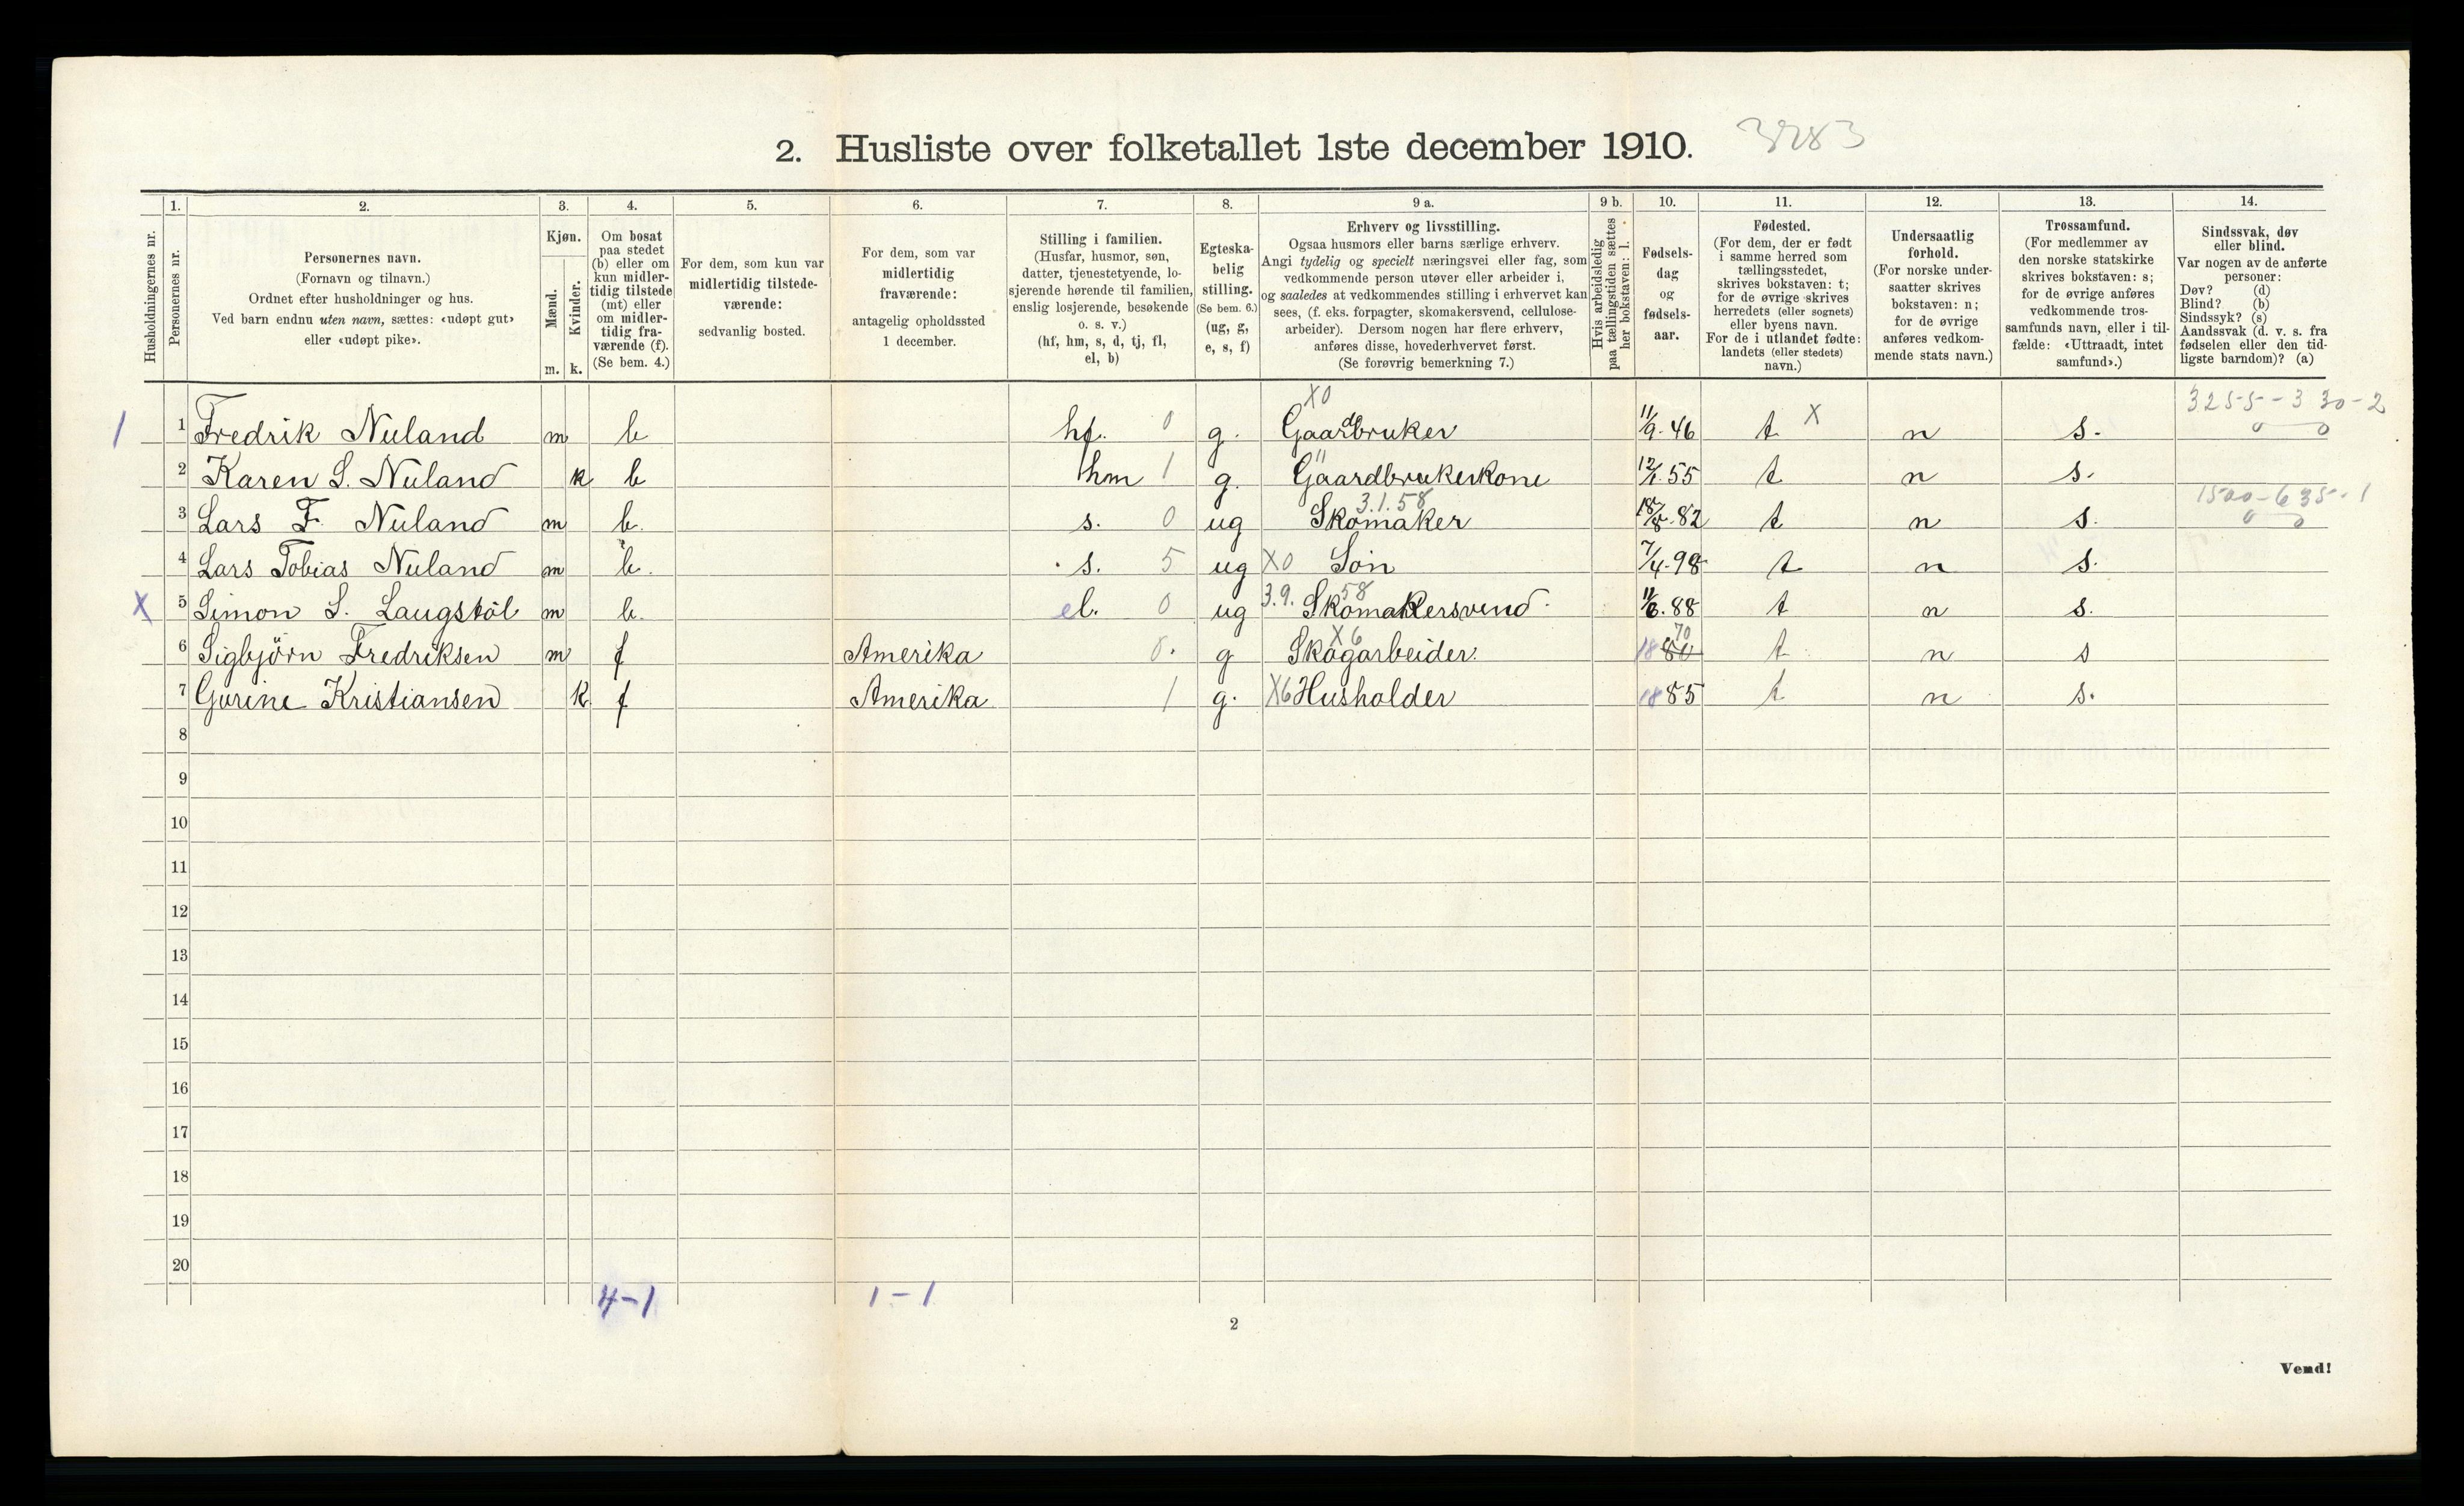 2. Husliste over folketallet 1ste december 1910. 3283
Husholdningernes nr.
1. Personernes nr.
2. Personernes navn. (Fornavn og tilnavn.) Ordnet efter husholdninger og hus. Ved barn endnu uten navn, sættes: «udøpt gut» eller «udøpt pike».
3. Kjøn. Mænd. Kvinder. m. k.
4. Om bosat paa stedet (b) eller om kun midlertidig tilstede (mt) eller om midlertidig fraværende (f). (Se bem. 4.)
5. For dem, som kun var midlertidig tilstedeværende: sedvanlig bosted.
6. For dem, som var midlertidig fraværende: antagelig opholdssted 1 december.
7. Stilling i familien. (Husfar, husmor, søn, datter, tjenestetyende, losjerende hørende til familien, enslig losjerende, besøkende o. s. v.) (hf, hm, s, d, tj, fl, el, b)
8. Egteskabelig stilling. (Se bem. 6.) (ug, g, e, s, f)
9 a. Erhverv og livsstilling. Ogsaa husmors eller barns særlige erhverv. Angi tydelig og specielt næringsvei eller fag, som vedkommende person utøver eller arbeider i, og saaledes at vedkommendes stilling i erhvervet kan sees, (f. eks. forpagter, skomakersvend, cellulosearbeider). Dersom nogen har flere erhverv, anføres disse, hovederhvervet først. (Se forøvrig bemerkning 7.)
9 b. Hvis arbeidsledig paa tællingstiden sættes her bokstaven: l.
10. Fødselsdag og fødselsaar.
11. Fødested. (For dem, der er født i samme herred som tællingsstedet, skrives bokstaven: t; for de øvrige skrives herredets (eller sognets) eller byens navn. For de i utlandet fødte: landets (eller stedets) navn.)
12. Undersaatlig forhold. (For norske undersaatter skrives bokstaven: n; for de øvrige anføres vedkommende stats navn.)
13. Trossamfund. (For medlemmer av den norske statskirke skrives bokstaven: s; for de øvrige anføres vedkommende trossamfunds navn, eller i tilfælde: «Uttraadt, intet samfund».)
14. Sindssvak, døv eller blind. Var nogen av de anførte personer: Døv? (d) Blind? (b) Sindssyk? (s) Aandssvak (d. v. s. fra fødselen eller den tidligste barndom)? (a)
X0 3255-330-2
1 1 Fredrik Nuland m b hf. 0 g. Gaardbruker 11/9-46 t X n s. 0 0
2 Karen S. Nuland k b hm 1 g. Gaardbrukerkone 12/1 55 t n s.
3.1.58 1500-635-1
3 Lars F. Nuland m b. s. 0 ug Skomaker 18/8-82 t n s. 0 0
4 Lars Tobias Nuland m b. s. 5 ug X0 Søn 7/4-98 t n s.
X 5 Simon S. Laugstøl m b. el. 0 ug 3.9.58 Skomakersvend 11/6.88 t n s.
6 Sigbjørn Fredriksen m f Amerika 0. g X6 Skogarbeider. 1880 70 t n s
7 Gurine Kristiansen k f Amerika 1 g. X6 Husholder 1885 t n s.
8
9
10
11
12
13
14
15
16
17
18
19
20
4-1 1-1
2
Vend!